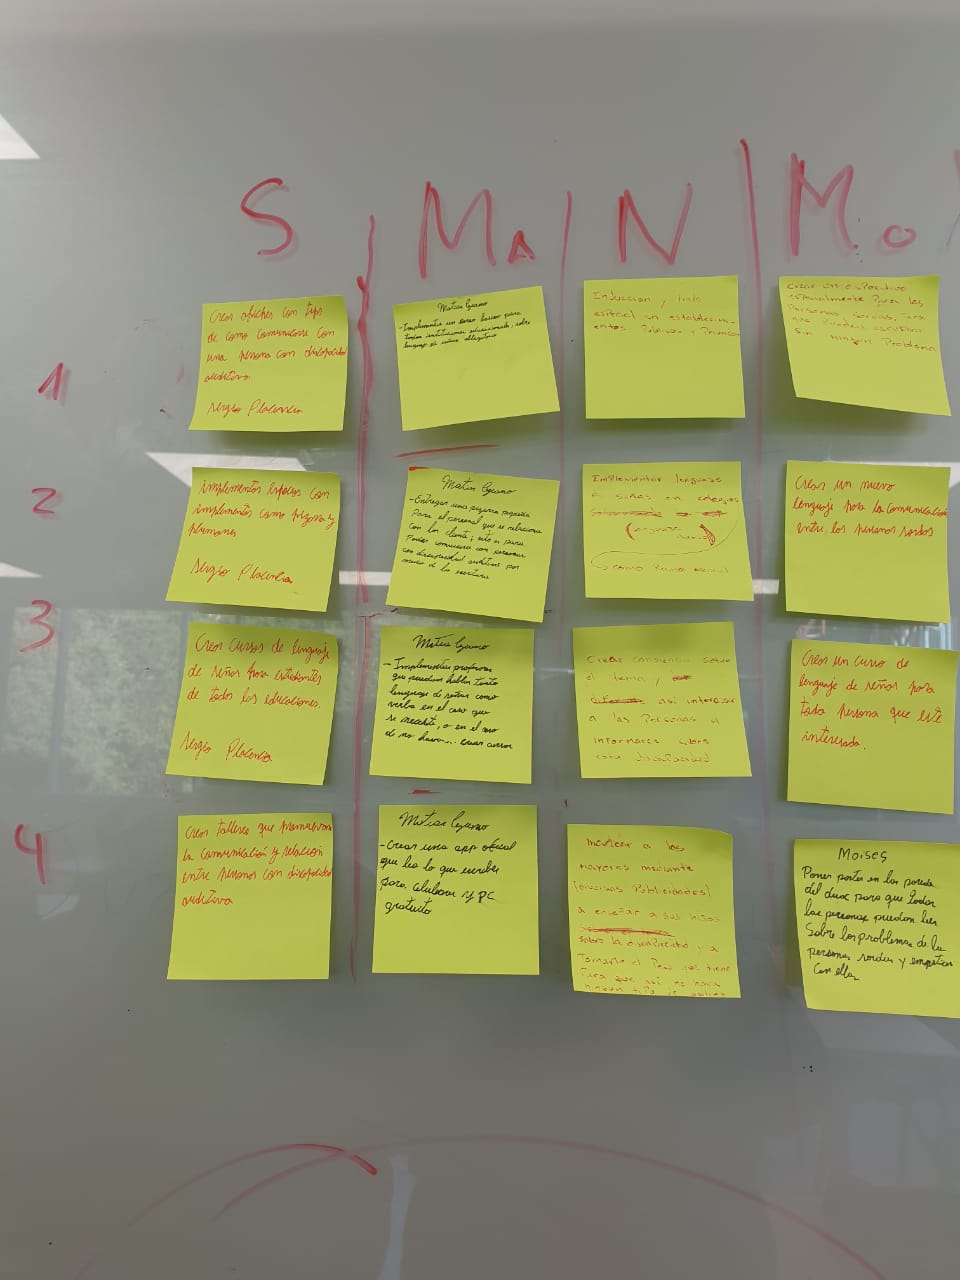 S
Ma
N
Mo
1
Crear afiches con tips
de como comunicarse con
una persona con discapacidad
auditiva.
Sergio Placencia
Matias
-Implementar un curso basico para
todas instituciones educacionales, sobre
lenguaje de señas obligatorio
Induccion y trato
especial en establecimi-
entos Publicos y Privados
Crear un dispositivo
especialmente para las
Personas sordas, Para
que Puedan escuchar
Sin ningun Problema
2
implementos espacios con
implementos como pizarra y
plumones
Sergio Placencia
Matias
-Entregar una pizarra pequeña
Para el personal que se relaciona
con los cliente, esto es para
Poder comunicarse con personas
con discapacidad auditiva por
medio de la escritura
Implementar lenguaje
señas en colegios
como Ramo
Crear un nuevo
lenguaje para la comunicación
entre las personas sordas
3
Crear cursos de lenguaje
de señas para estudiantes
de todos las educaciones.
Sergio Placencia
Matias
-Implementar profesores
que puedan hablar tanto
lenguaje de señas como
verbal en el caso que
se necesite, o en el caso
de no haber... crear
Crear conciencia sobre
el tema y
asi interezar
a las Personas a
informarce sobre
esta discapacidad
Crear un curso de
lenguaje de señas para
toda persona que este
interesada.
4
Crear talleres que promuevan
la comunicación y relación
entre personas con discapacidad
auditiva
Matias
-Crear una app oficial
que lea lo que escriben
para celulares y PC
gratuito
a los
mayores mediante
(diversas Publicidades)
a enseñar a sus niños
sobre la discapacidad y a
Tomarle el Peso que tiene
Para que asi no haya
ningun tipo de
Moises
Poner poster en las paredes
del duoc para que todas
las personas puedan leer
Sobre los problemas de las
personas sordas y empaticen
Con ellas